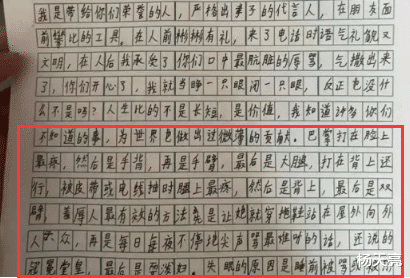 我是带给你们荣誉的人,严格出事子的代言人,在朋友面
前攀比的工具,在人前彬彬有礼,来了电话时语气礼貌又
文明,在人后我承受了你们口中最肮脏的辱骂,气撒出来
了,你们开心了,我就当睁一只眼闭一只眼,反正也没什
么不是吗?人生比的不是长短,是价值,我知道许多你们
不知道的事,为世界也做出过微薄的贡献。巴掌打在脸上
最疼,然后是手背,再是手臂,最后是大腿,打在背上还
行,被皮带或电线抽时腿上最疼,然后是背上,最后是双
臂,羞辱人最有效的方法就是让她就穿 站在屋外向外
人 众,再是每日每夜不停地尖声骂最难听的话,还说的
冠冕堂皇,最后是 失眠的原因是睡前被骂
杨天亮